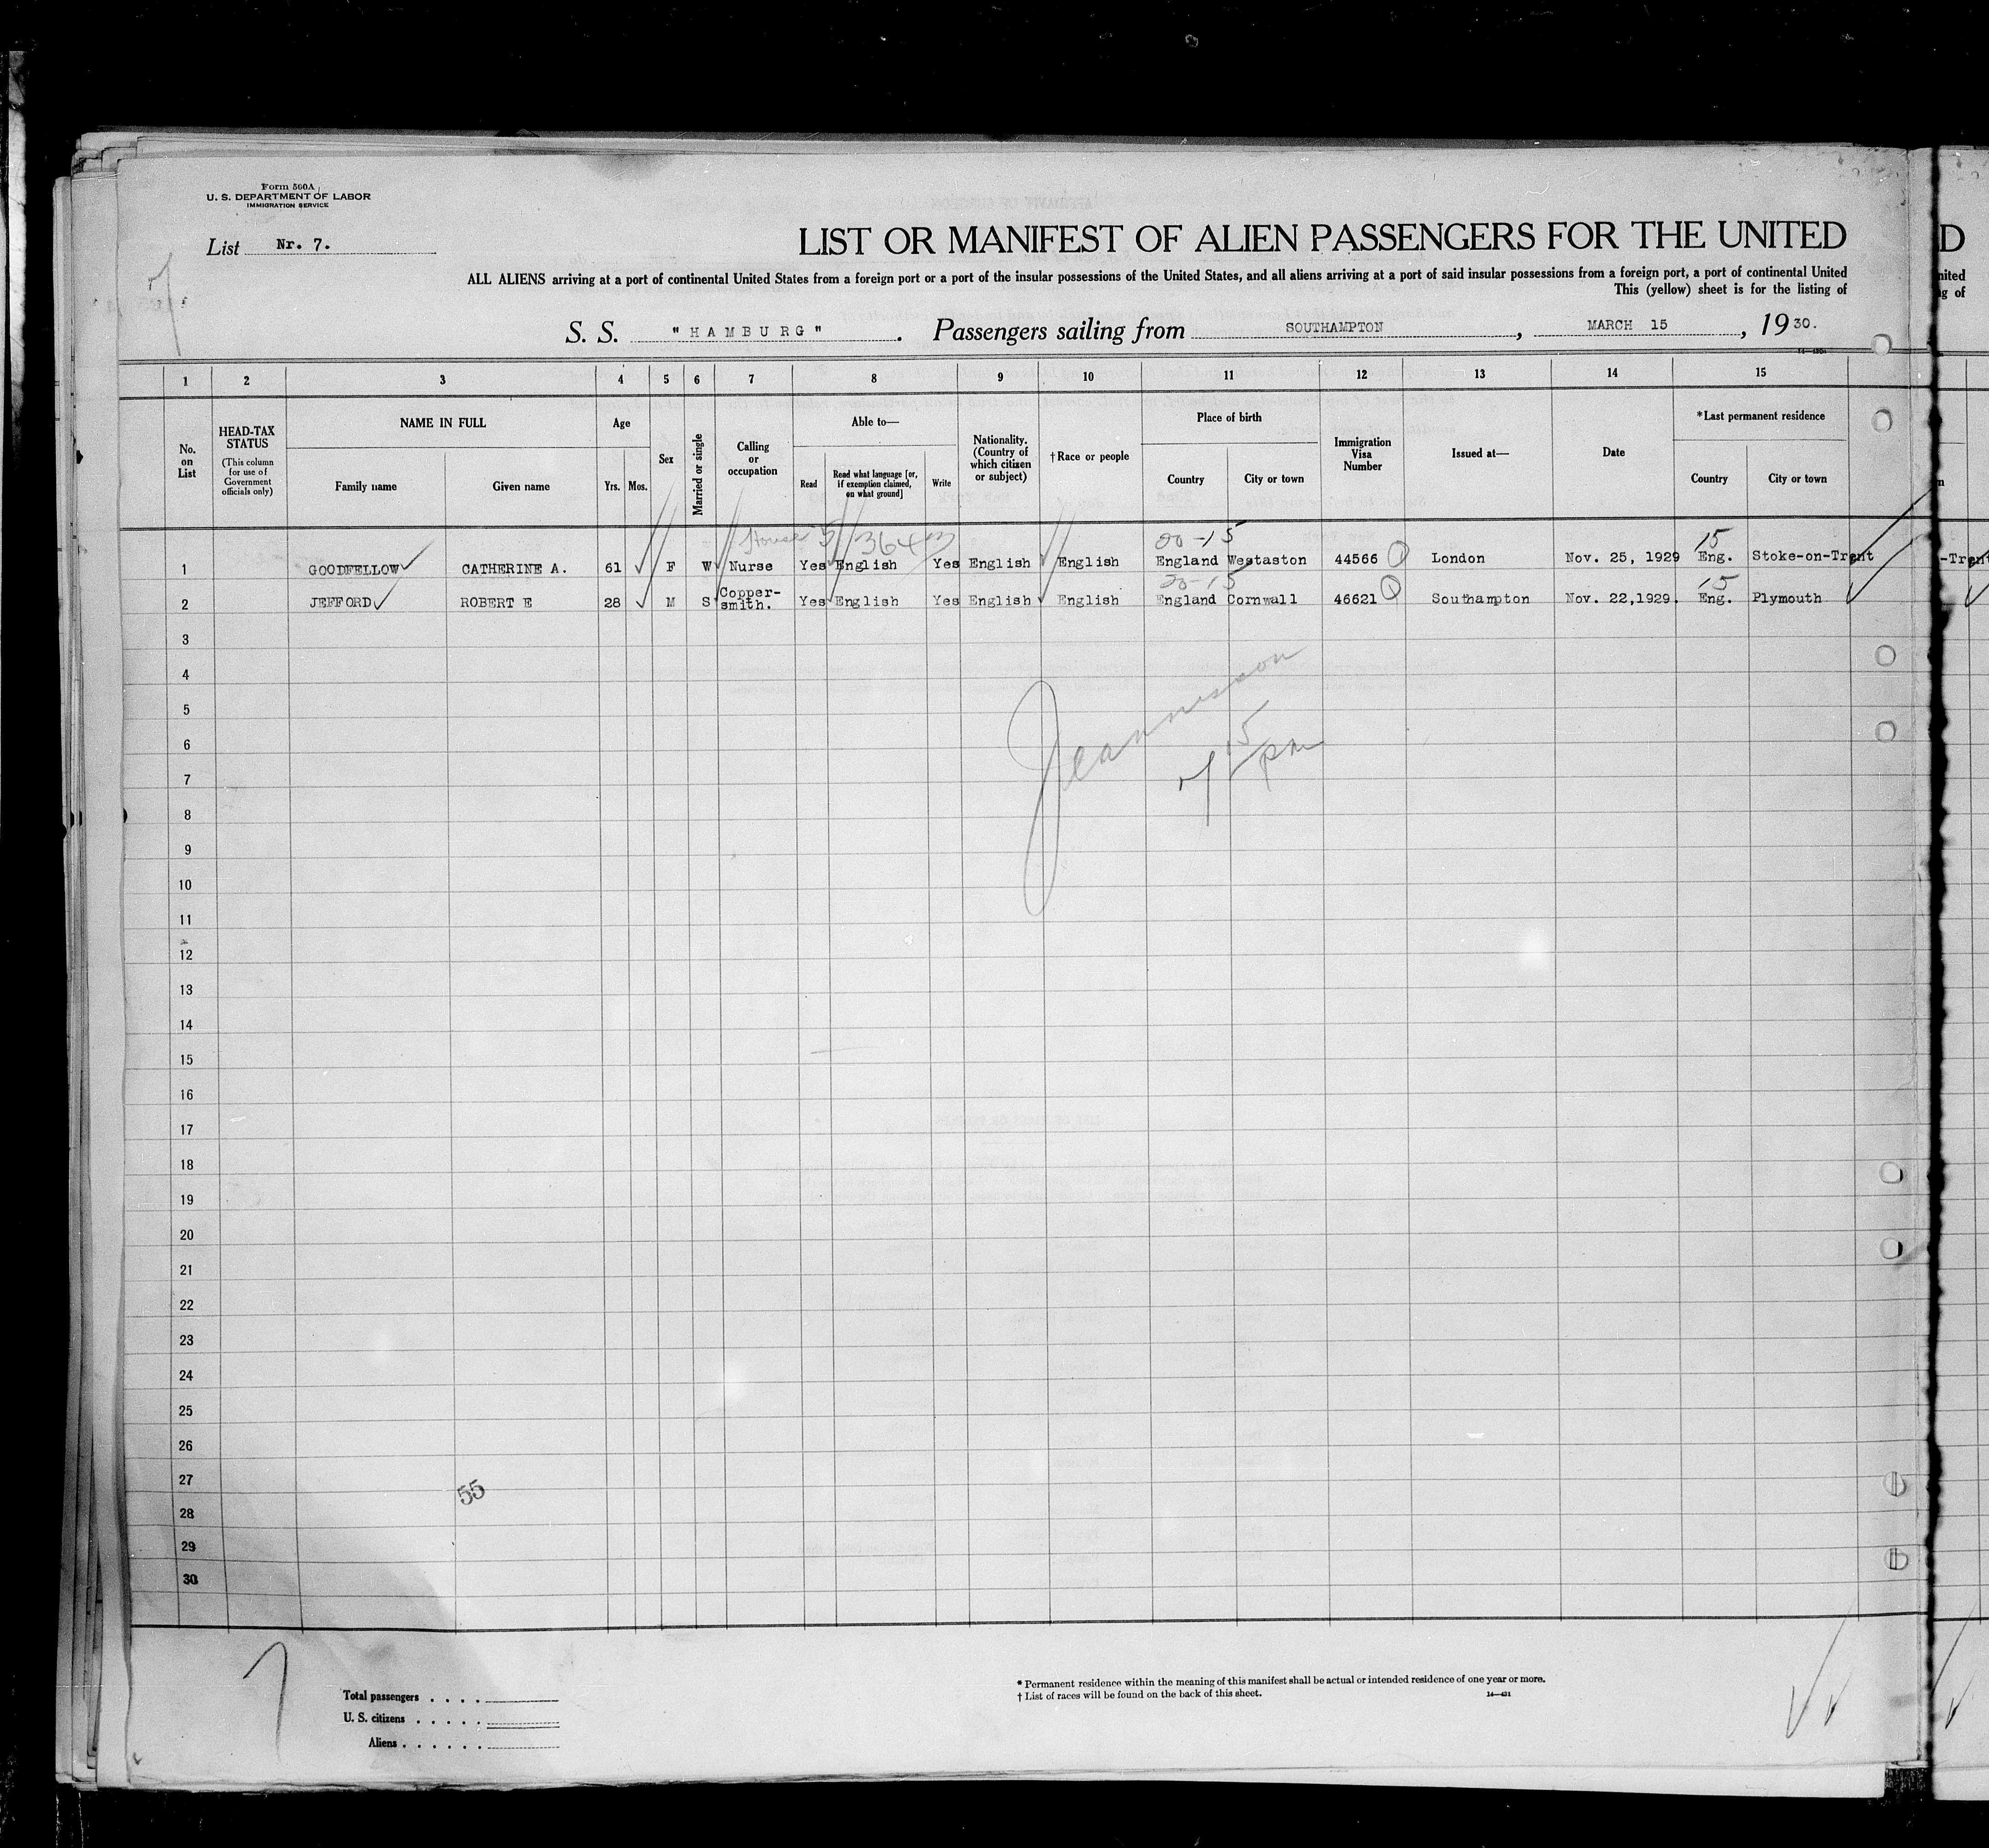 Form 500A
U. S. DEPARTMENT OF LABOR
IMMIGRATION SERVICE
List Nr. 7.
LIST OR MANIFEST OF ALIEN PASSENGERS FOR THE UNITED
ALL ALIENS arriving at a port of continental United States from a foreign port or a port of the insular possessions of the United States, and all aliens arriving at a port of said insular possessions from a foreign port, a port of continental United
This (yellow) sheet is for the listing of
S. S. "HAMBURG". Passengers sailing from SOUTHAMPTON, MARCH 15, 1930.
1 2 3 4 5 6 7 8 9 10 11 12 13 14 15
No. on List
HEAD-TAX STATUS (This column for use of Government officials only)
NAME IN FULL
Family name Given name
Age
Yrs. Mos.
Sex
Married or single
Calling or occupation
Able to—
Read Read what language [or, if exemption claimed, on what ground] Write
Nationality. (Country of which citizen or subject)
†Race or people
Place of birth
Country City or town
Immigration Visa Number
Issued at—
Date
*Last permanent residence
Country City or town
20-15 15
1 GOODFELLOW CATHERINE A. 61 F W Nurse Yes English Yes English English England Westaston 44566 London Nov. 25, 1929 Eng. Stoke-on-Trent
20-15 15
2 JEFFORD ROBERT E 28 M S Copper-smith. Yes English Yes English English England Cornwall 46621 Southampton Nov. 22,1929. Eng. Plymouth
3
4
5
6
7
8
9
10
11
12
13
14
15
16
17
18
19
20
21
22
23
24
25
26
27
28
29
30
55
Total passengers
U. S. citizens
Aliens
* Permanent residence within the meaning of this manifest shall be actual or intended residence of one year or more.
† List of races will be found on the back of this sheet.
14—421